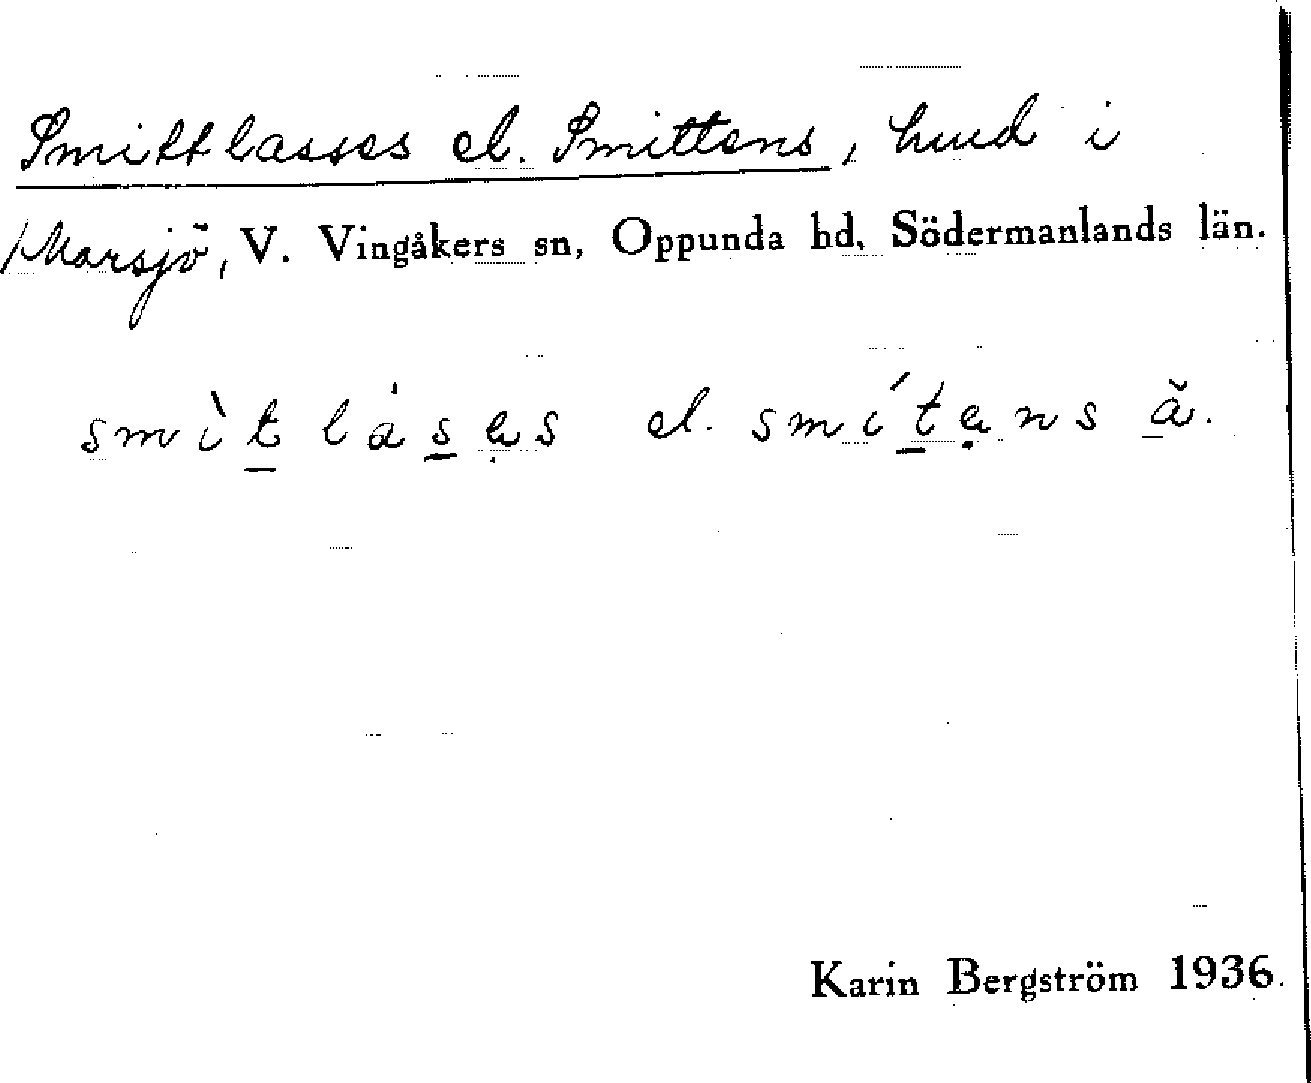 Smittlasses el. Smittens, hus i
Marsjö, V. Vingåkers sn, Oppunda hd, Södermanlands län.
smìt lásẹs el. smítẹns ä̆.
Karin Bergström 1936.